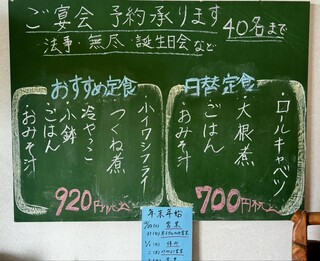 ご宴会 予約承ります
40名まで
法事・無尽・誕生日会など
おすすめ定食
・小イワシフライ
・つくね煮
・冷やっこ
・小鉢
・ごはん
・おみそ汁
920円税込
日替定食
・ロールキャベツ
・大根煮
・ごはん
・おみそ汁
700円税込
年末年始